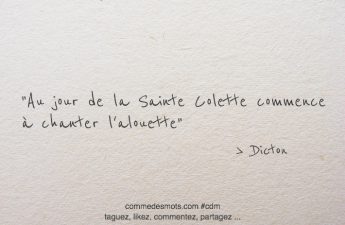 "Au jour de la Sainte Colette commence
à chanter l'alouette"
> Dicton
commedesmots.com #cdm
taguez, likez, commentez, partagez ...